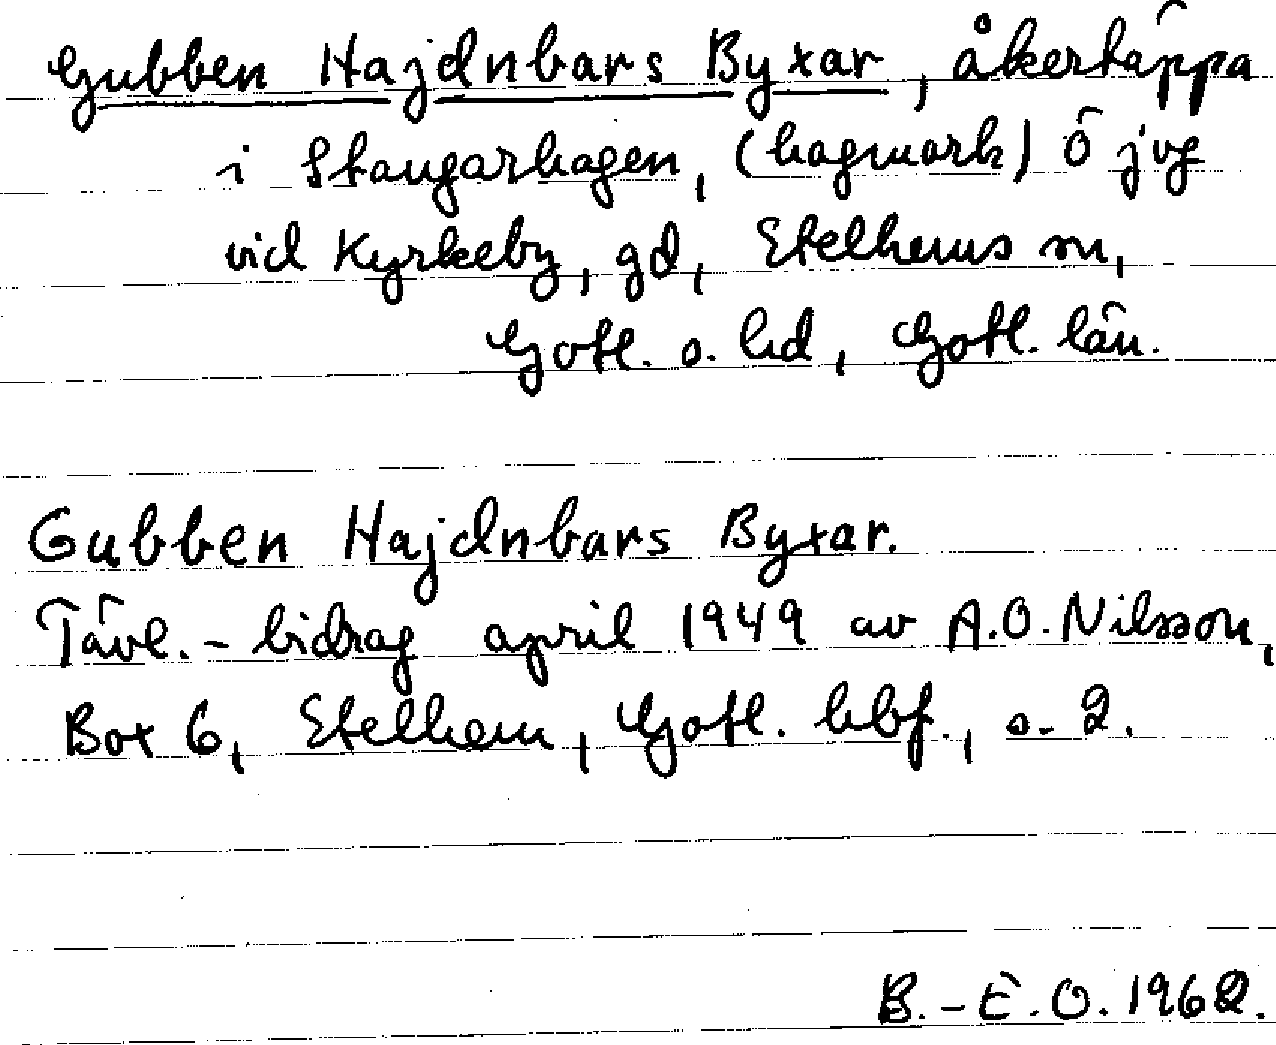 Gubben Hajdnbars Byxar, åkertäppa
i Staugarhagen, (hagmark) Ö jvg
vid Kyrkeby, gd, Etelhems sn,
Gotl. s. hd, Gotl. län.
Gubben Hajdnbars Byxar.
Tävl.- bidrag april 1949 av A.O. Nilsson,
Box 6, Etelhem, Gotl. hbf., s. 2.
B.-E.O. 1962.